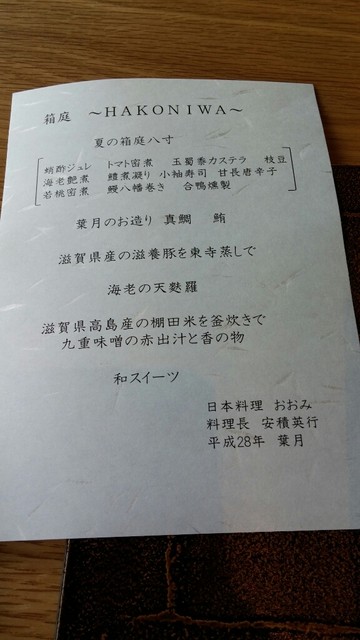 箱庭 ～HAKONIWA～
夏の箱庭八寸
蛸酢ジュレ トマト密煮 玉蜀黍カステラ 枝豆
海老艶煮 鱧煮凝り 小袖寿司 甘長唐辛子
若桃密煮 鰻八幡巻き 合鴨燻製
葉月のお造り 真鯛 鮪
滋賀県産の滋養豚を東寺蒸しで
海老の天麩羅
滋賀県高島産の棚田米を釜炊きで
九重味噌の赤出汁と香の物
和スイーツ
日本料理 おおみ
料理長 安積英行
平成28年 葉月